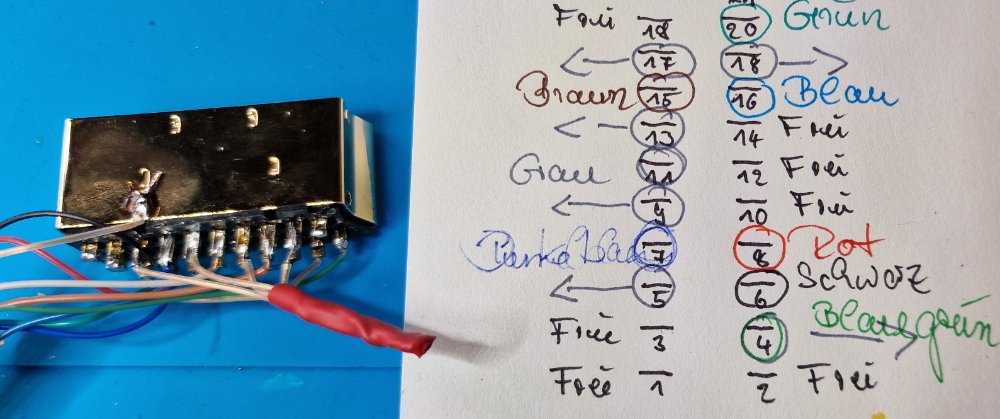 Frei 19 20 Grün
17 18
Braun 15 16 Blau
13 14 Frei
Grau 11 12 Frei
9 10 Frei
Dunkelblau 7 8 Rot
5 6 Schwarz
Frei 3 4
Frei 1 2 Frei